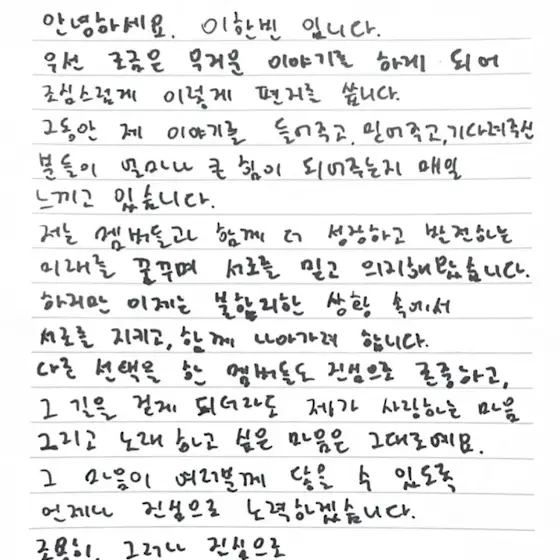 안녕하세요. 이한빈 입니다.
우선 조금은 무거운 이야기를 하게 되어
조심스럽게 이렇게 편지를 씁니다.
그동안 제 이야기를 들어주고, 믿어주고, 기다려주신
분들이 얼마나 큰 힘이 되어주는지 매일
느끼고 있습니다.
저는 멤버들과 함께 더 성장하고 발전하는
미래를 꿈꾸며 서로를 믿고 의지해왔습니다.
하지만 이제는 불합리한 상황 속에서
서로를 지키고, 함께 나아가려 합니다.
다른 선택을 한 멤버들도 진심으로 존중하고,
그 길을 걷게 되더라도 제가 사랑하는 마음
그리고 노래 하고 싶은 마음은 그대로예요.
그 마음이 여러분께 닿을 수 있도록
언제나 진심으로 노력하겠습니다.
조용히, 그러나 진심으로